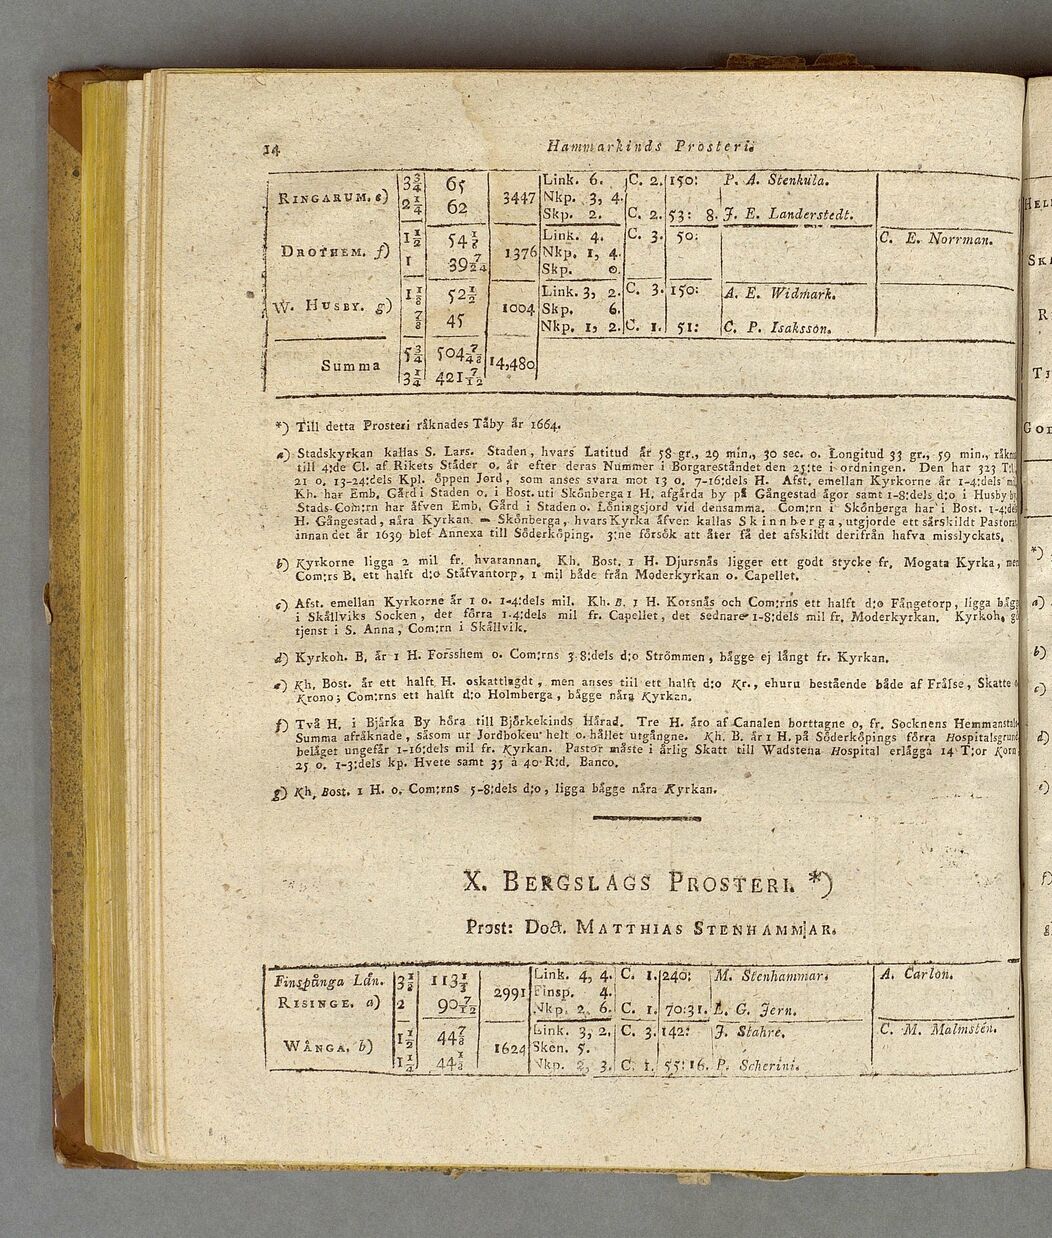 14 Hammarkinds Prosteri.
RINGARUM. e) 3¾ 65 3447 Link. 6. C. 2. 150: P. A. Stenkula.
2¼ 62 Nkp. 3, 4.
Skp. 2. C. 2. 53: 8. J. E. Landerstedt.
DROTHEM. f) 1½ 1376 Link. 4. C. 3. 50: C. E. Norrman.
1 39 Nkp. 1, 4.
Skp. 0.
W. HUSBY. g) 1⅛ 52½ 1004 Link. 3, 2. C. 3. 150: A. E. Widmark.
⅞ 45 Skp. 6.
Nkp. 1, 2. C. 1. 51: C. P. Isaksson.
Summa 5¾ 14,480
3¼ 421 7/12
*) Till detta Prosteri råknades Tåby år 1664.
a) Stadskyrkan kallas S. Lars. Staden, hvars Latitud år 58 gr., 29 min., 30 sec. o. Longitud 33 gr., 59 min., råkn
till 4:de Cl. af Rikets Ståder o. år efter deras Nummer i Borgareståndet den 25:te i ordningen. Den har 323 T:l.
21 o. 13-24:dels Kpl. öppen Jord, som anses svara mot 13 o. 7-16:dels H. Afst. emellan Kyrkorne år 1-4:dels
Kh. har Emb. Gård i Staden o. i Bost. uti Skönberga 1 H. afgårda by på Gångestad ågor samt 1-8:dels d:o i Husby
Stads-Com:rn har åfven Emb. Gård i Staden o. Löningsjord vid densamma. Com:rn i Skönberga har i Bost. 1-4:del
H. Gångestad, nåra Kyrkan. — Skönberga, hvars Kyrka åfven kallas Skinnberga, utgjorde ett sårskildt Pastorat
innan det år 1639 blef Annexa till Söderköping. 3:ne försök att åter få det afskildt derifrån hafva misslyckats.
b) Kyrkorne ligga 2 mil fr. hvarannan. Kh. Bost. 1 H. Djursnås ligger ett godt stycke fr. Mogata Kyrka, men
Com:rs B. ett halft d:o Ståfvantorp, 1 mil både från Moderkyrkan o. Capellet.
c) Afst. emellan Kyrkorne år 1 o. 1-4:dels mil. Kh. B. 1 H. Korsnås och Com:rns ett halft d:o Fångetorp, ligga bågg
i Skållviks Socken, det förra 1-4:dels mil fr. Capellet, det sednare 1-8:dels mil fr. Moderkyrkan. Kyrkoh. g
tjenst i S. Anna, Com:rn i Skållvik.
d) Kyrkoh. B. år 1 H. Forsshem o. Com:rns 3-8:dels d:o Strömmen, bågge ej långt fr. Kyrkan.
e) Kh. Bost. år ett halft H. oskattlagdt, men anses till ett halft d:o Kr., ehuru bestående både af Frålse, Skatte o
Krono; Com:rns ett halft d:o Holmberga, bågge nåra Kyrkan.
f) Två H. i Bjårka By höra till Björkekinds Hårad. Tre H. åro af Canalen borttagne o. fr. Socknens Hemmantals
Summa afråknade, såsom ur Jordboken helt o. hållet utgångne. Kh. B. år 1 H. på Söderköpings förra Hospitalsgrund
belåget ungefår 1-16:dels mil fr. Kyrkan. Pastor måste i årlig Skatt till Wadstena Hospital erlågga 14 T:or Korn
25 o. 1-3:dels kp. Hvete samt 35 à 40 R:d. Banco.
g) Kh. Bost. 1 H. o. Com:rns 5-8:dels d:o, ligga bågge nåra Kyrkan.
X. BERGSLAGS PROSTERI. *)
Prost: Doct. MATTHIAS STENHAMMAR.
Finspånga Lån. 3⅛ 113⅓ 2991 Link. 4, 4. C. 1. 240: M. Stenhammar. A. Carlon.
RISINGE. a) 2 90 7/12 Finsp. 4.
Nkp. 2, 6. C. 1. 70:31. L. G. Jern.
WÅNGA. b) 1½ 44⅞ 1624 Link. 3, 2. C. 3. 142: J. Stahre. C. M. Malmstén.
1¼ Sken. 5.
Nkp. 2, 3. C. 1. 55:16. P. Scherini.